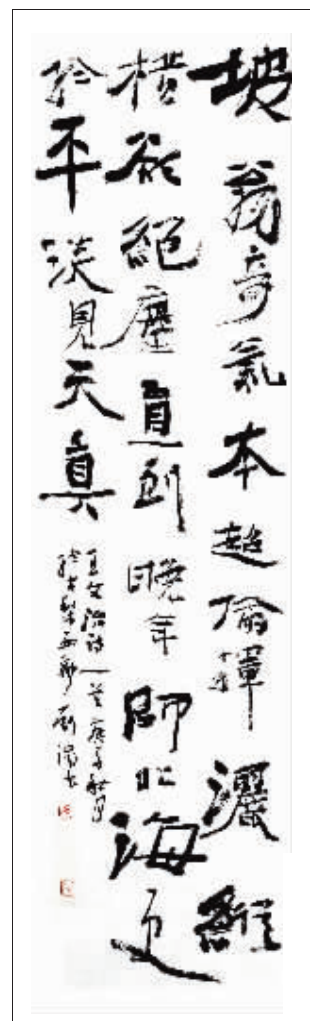 坡翁奇氣本超倫揮灑縱
橫欲絕塵直到晚年師北海更
於平淡見天真
王文治詩一首庚子秋月